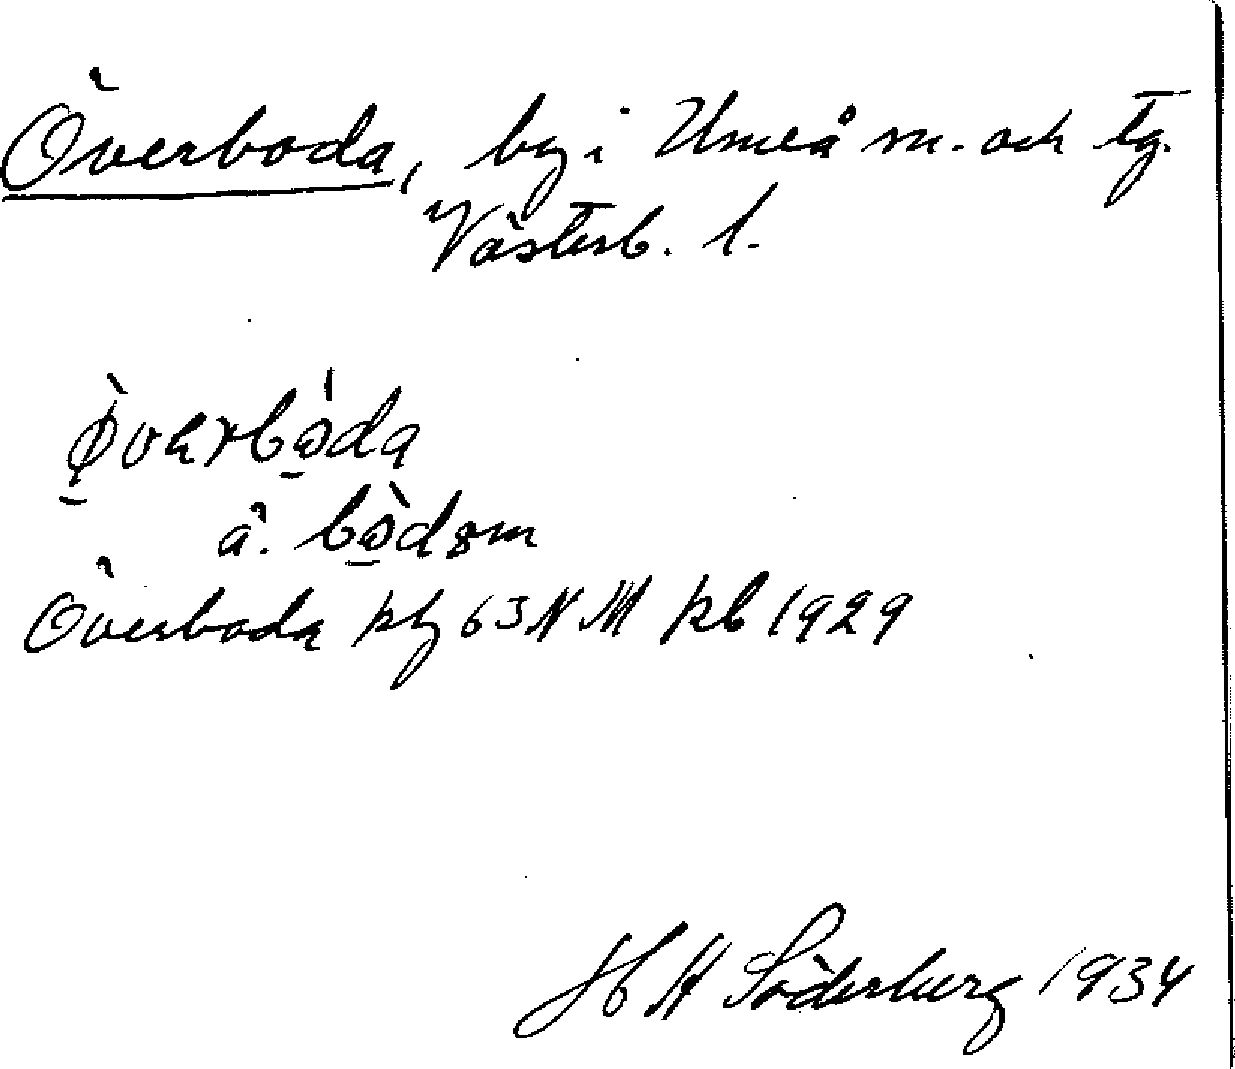 Överboda, by i Umeå sn. och tg.
Västerb. l.
ø̀vərbɷ́da
å. bɷ̀dɞm
Överboda kbl 63 N M kb 1929
H H Söderberg 1934